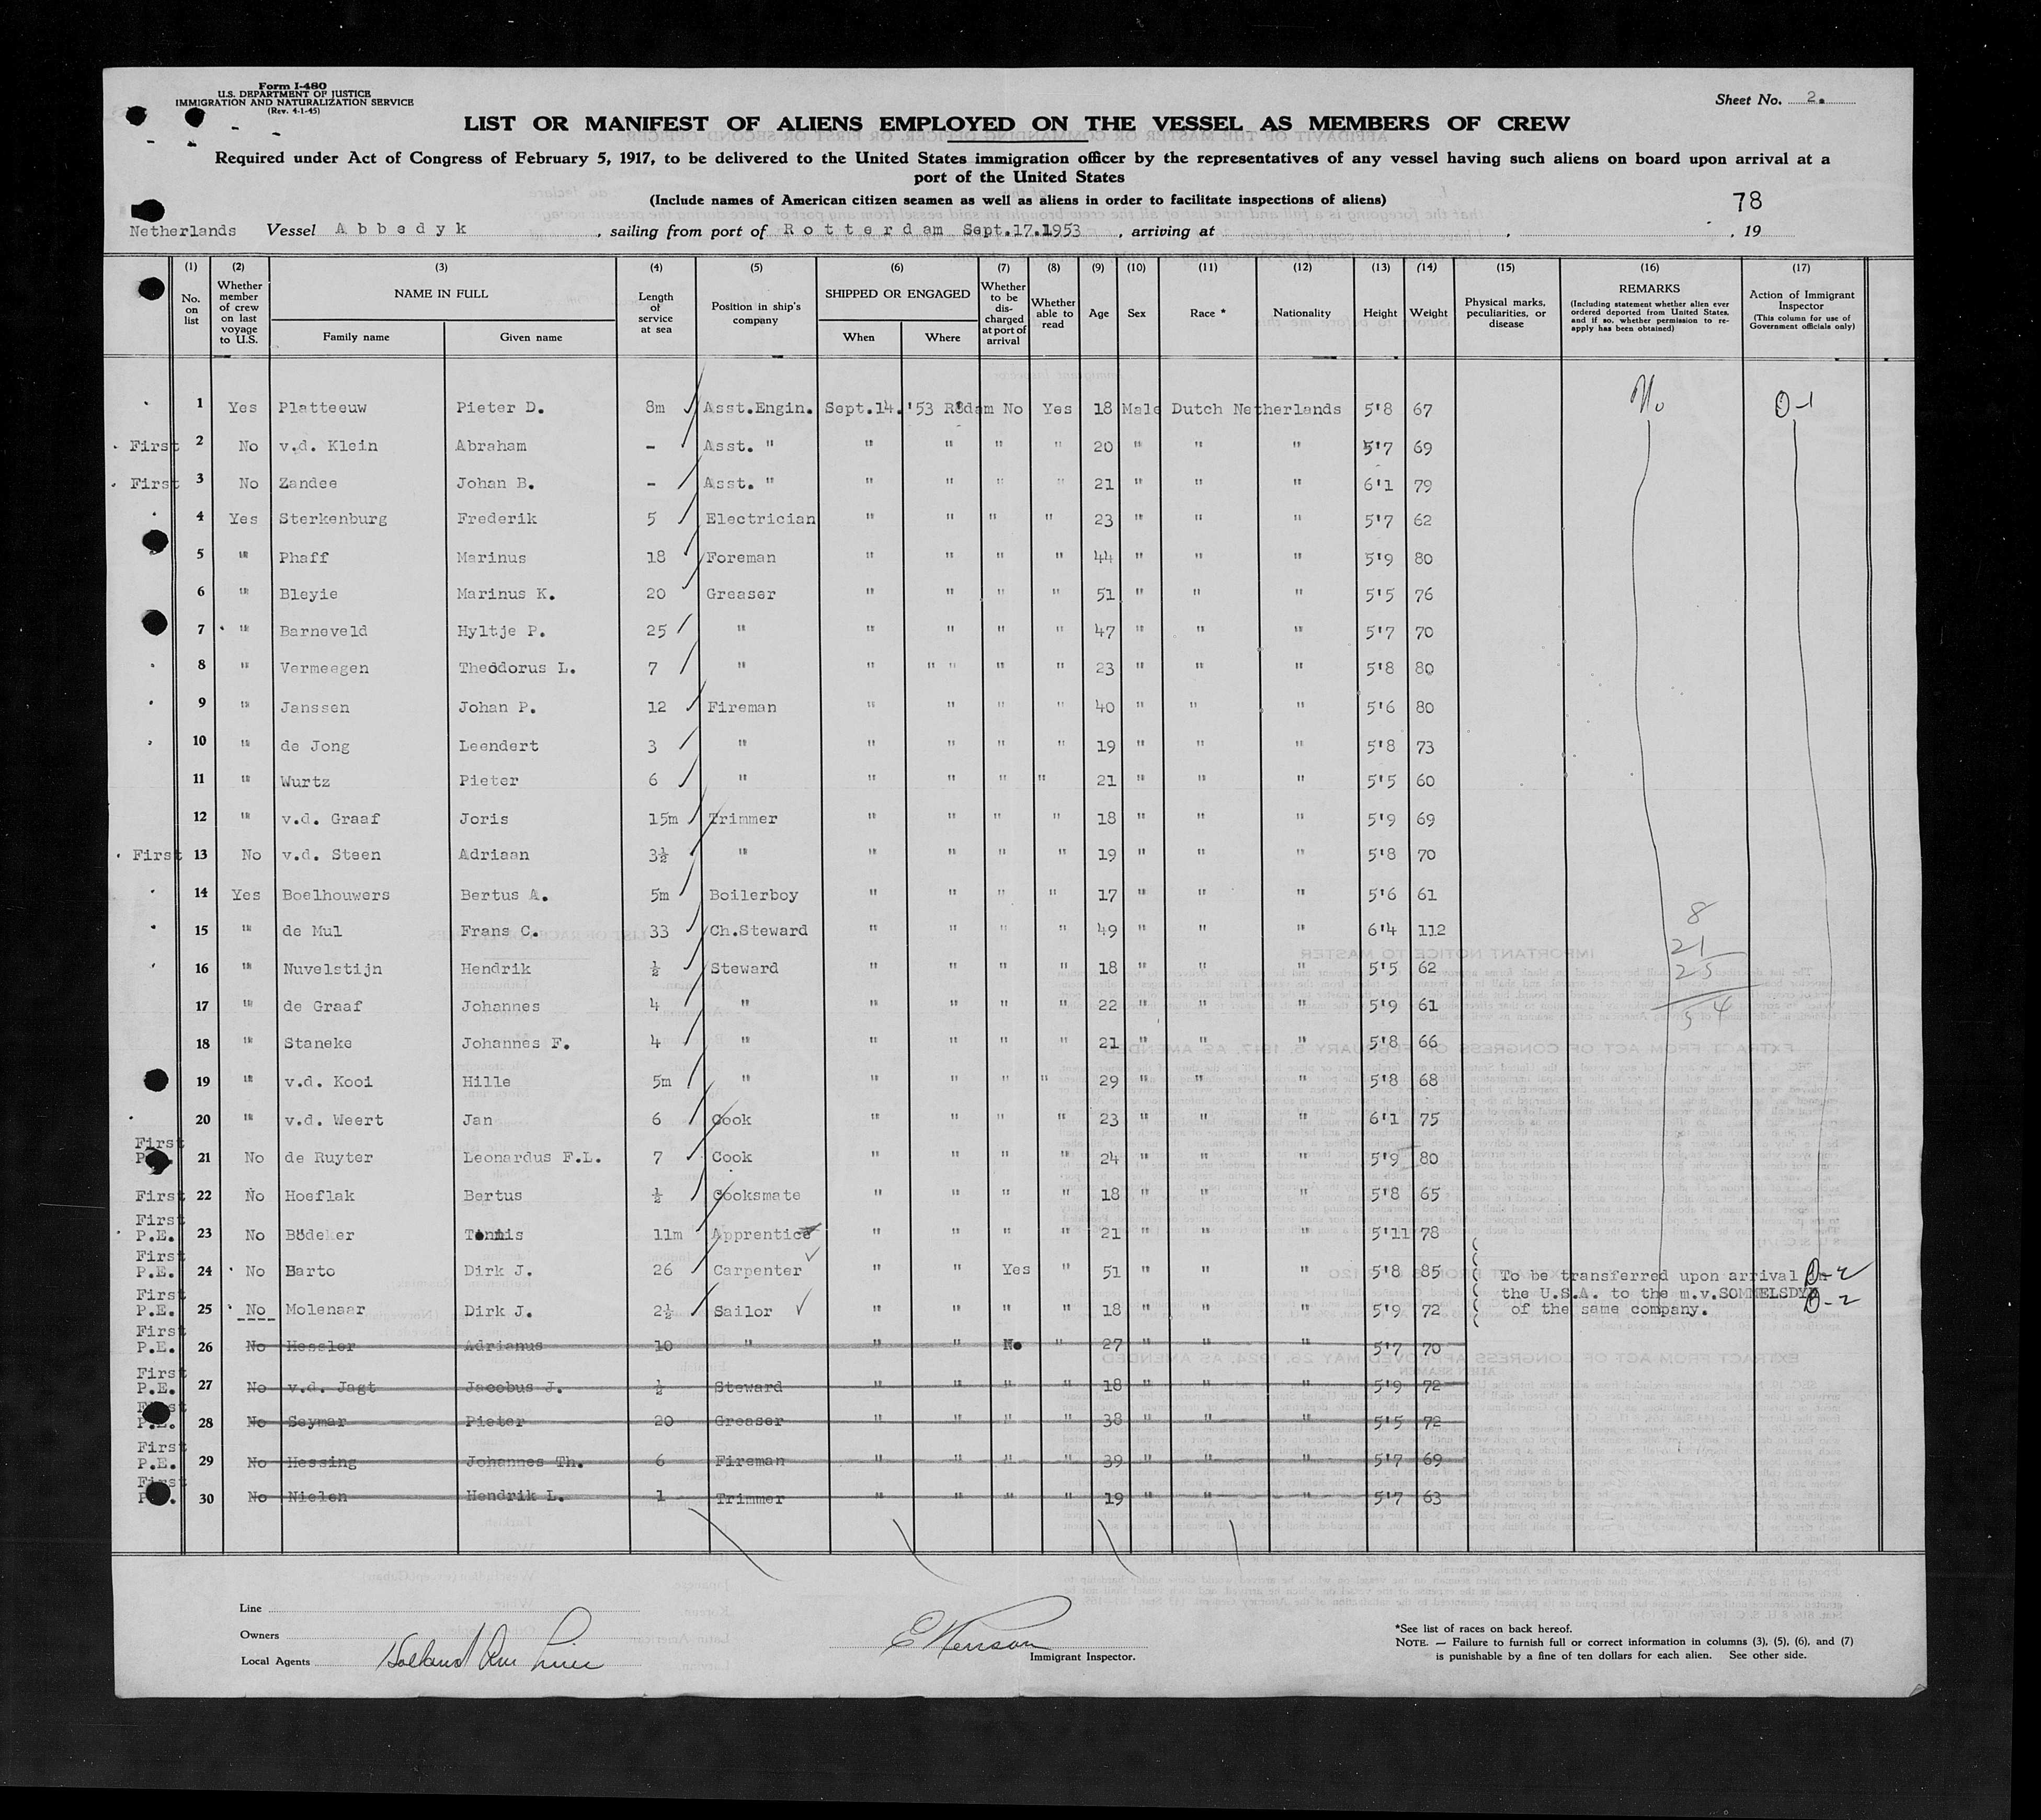 Form I-480
U.S. DEPARTMENT OF JUSTICE
IMMIGRATION AND NATURALIZATION SERVICE
(Rev. 4-1-45)
Sheet No. 2.
LIST OR MANIFEST OF ALIENS EMPLOYED ON THE VESSEL AS MEMBERS OF CREW
Required under Act of Congress of February 5, 1917, to be delivered to the United States immigration officer by the representatives of any vessel having such aliens on board upon arrival at a
port of the United States
(Include names of American citizen seamen as well as aliens in order to facilitate inspections of aliens)
78
Netherlands Vessel Abbedyk, sailing from port of Rotterdam Sept.17.1953, arriving at , , 19
(1) No. on list
(2) Whether member of crew on last voyage to U.S.
(3) NAME IN FULL
Family name Given name
(4) Length of service at sea
(5) Position in ship's company
(6) SHIPPED OR ENGAGED
When Where
(7) Whether to be discharged at port of arrival
(8) Whether able to read
(9) Age
(10) Sex
(11) Race *
(12) Nationality
(13) Height
(14) Weight
(15) Physical marks, peculiarities, or disease
(16) REMARKS
(Including statement whether alien ever ordered deported from United States, and if so, whether permission to re-apply has been obtained)
(17) Action of Immigrant Inspector
(This column for use of Government officials only)
1 Yes Platteeuw Pieter D. 8m Asst.Engin. Sept.14.'53 Rdam No Yes 18 Male Dutch Netherlands 5'8 67 No D-1
First 2 No v.d. Klein Abraham - Asst. " " " " " 20 " " " 5'7 69
First 3 No Zandee Johan B. - Asst. " " " " " 21 " " " 6'1 79
4 Yes Sterkenburg Frederik 5 Electrician " " " " 23 " " " 5'7 62
5 " Phaff Marinus 18 Foreman " " " " 44 " " " 5'9 80
6 " Bleyie Marinus K. 20 Greaser " " " " 51 " " " 5'5 76
7 " Barneveld Hyltje P. 25 " " " " " 47 " " " 5'7 70
8 " Vermeegen Theodorus L. 7 " " " " " " 23 " " " 5'8 80
9 " Janssen Johan P. 12 Fireman " " " " 40 " " " 5'6 80
10 " de Jong Leendert 3 " " " " " 19 " " " 5'8 73
11 " Wurtz Pieter 6 " " " " " 21 " " " 5'5 60
12 " v.d. Graaf Joris 15m Trimmer " " " " 18 " " " 5'9 69
First 13 No v.d. Steen Adriaan 3½ " " " " " 19 " " " 5'8 70
14 Yes Boelhouwers Bertus A. 5m Boilerboy " " " " 17 " " " 5'6 61
15 " de Mul Frans C. 33 Ch.Steward " " " " 49 " " " 6'4 112
16 " Nuvelstijn Hendrik ½ Steward " " " " 18 " " " 5'5 62
17 " de Graaf Johannes 4 " " " " " 22 " " " 5'9 61
18 " Staneke Johannes F. 4 " " " " " 21 " " " 5'8 66
19 " v.d. Kooi Hille 5m " " " " " 29 " " " 5'8 68
20 " v.d. Weert Jan 6 Cook " " " " 23 " " " 6'1 75
First
P.E. 21 No de Ruyter Leonardus F.L. 7 Cook " " " " 24 " " " 5'9 80
First 22 No Hoeflak Bertus ½ Cooksmate " " " " 18 " " " 5'8 65
First
P.E. 23 No Bödeker Tonnis 11m Apprentice " " " " 21 " " " 5'11 78
First
P.E. 24 No Barto Dirk J. 26 Carpenter " " Yes " 51 " " " 5'8 85
First
P.E. 25 No Molenaar Dirk J. 2½ Sailor " " " " 18 " " " 5'9 72
First
P.E. 26 No Hessler Adrianus 10 " " " No " 27 " " " 5'7 70
First
P.E. 27 No v.d. Jagt Jacobus J. ½ Steward " " " " 18 " " " 5'9 72
First
P.E. 28 No Seymar Pieter 20 Greaser " " " " 38 " " " 5'5 72
First
P.E. 29 No Hessing Johannes Th. 6 Fireman " " " " 39 " " " 5'7 69
First
P.E. 30 No Nielen Hendrik L. 1 Trimmer " " " " 19 " " " 5'7 63
8
21
25
54
To be transferred upon arrival in D-2
the U.S.A. to the m.v.SOMMELSDYK D-2
of the same company.
Line
Owners
Local Agents Holland Am Line
Immigrant Inspector.
*See list of races on back hereof.
NOTE. — Failure to furnish full or correct information in columns (3), (5), (6), and (7)
is punishable by a fine of ten dollars for each alien. See other side.